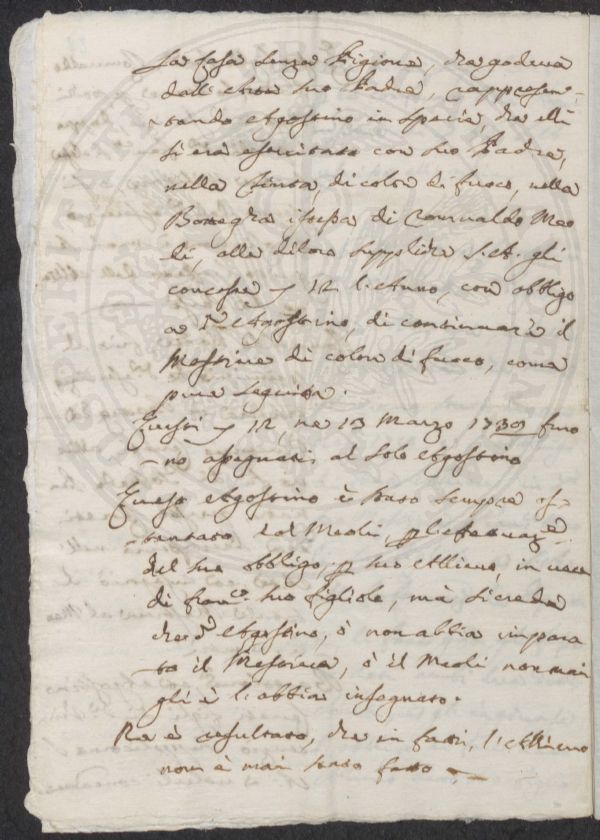 la Casa senza Pigione, che godeva
dall'altro suo Padre, rappresen-
tando Agostino in specie, che elli
si era esercitato con suo Padre,
nella Tinta, di color di fuoco, nella
Bottegha istessa di Romualdo Meo
li, alle di loro suppliche S. A. gli
concesse 12 l'Anno, con obbligo
a Agostino, di continuare il
Mestiere di color di fuoco, come
pure seguita.
Questi 12, ne 13 Marzo 1739 furo
no assegnati al solo Agostino
Questo Agostino è stato sempre
dal Meoli,
del suo obbligo, per suo Allievo, in vece
di Franc.o suo figliolo, mà si crede
che d.o Agostino, ò non abbia impara
to il Mestiere, ò il Meoli non mai
gli è l'abbia insegnato.
Ne è resultato, che in fatti, l'Allievo
non è mai stato fatto